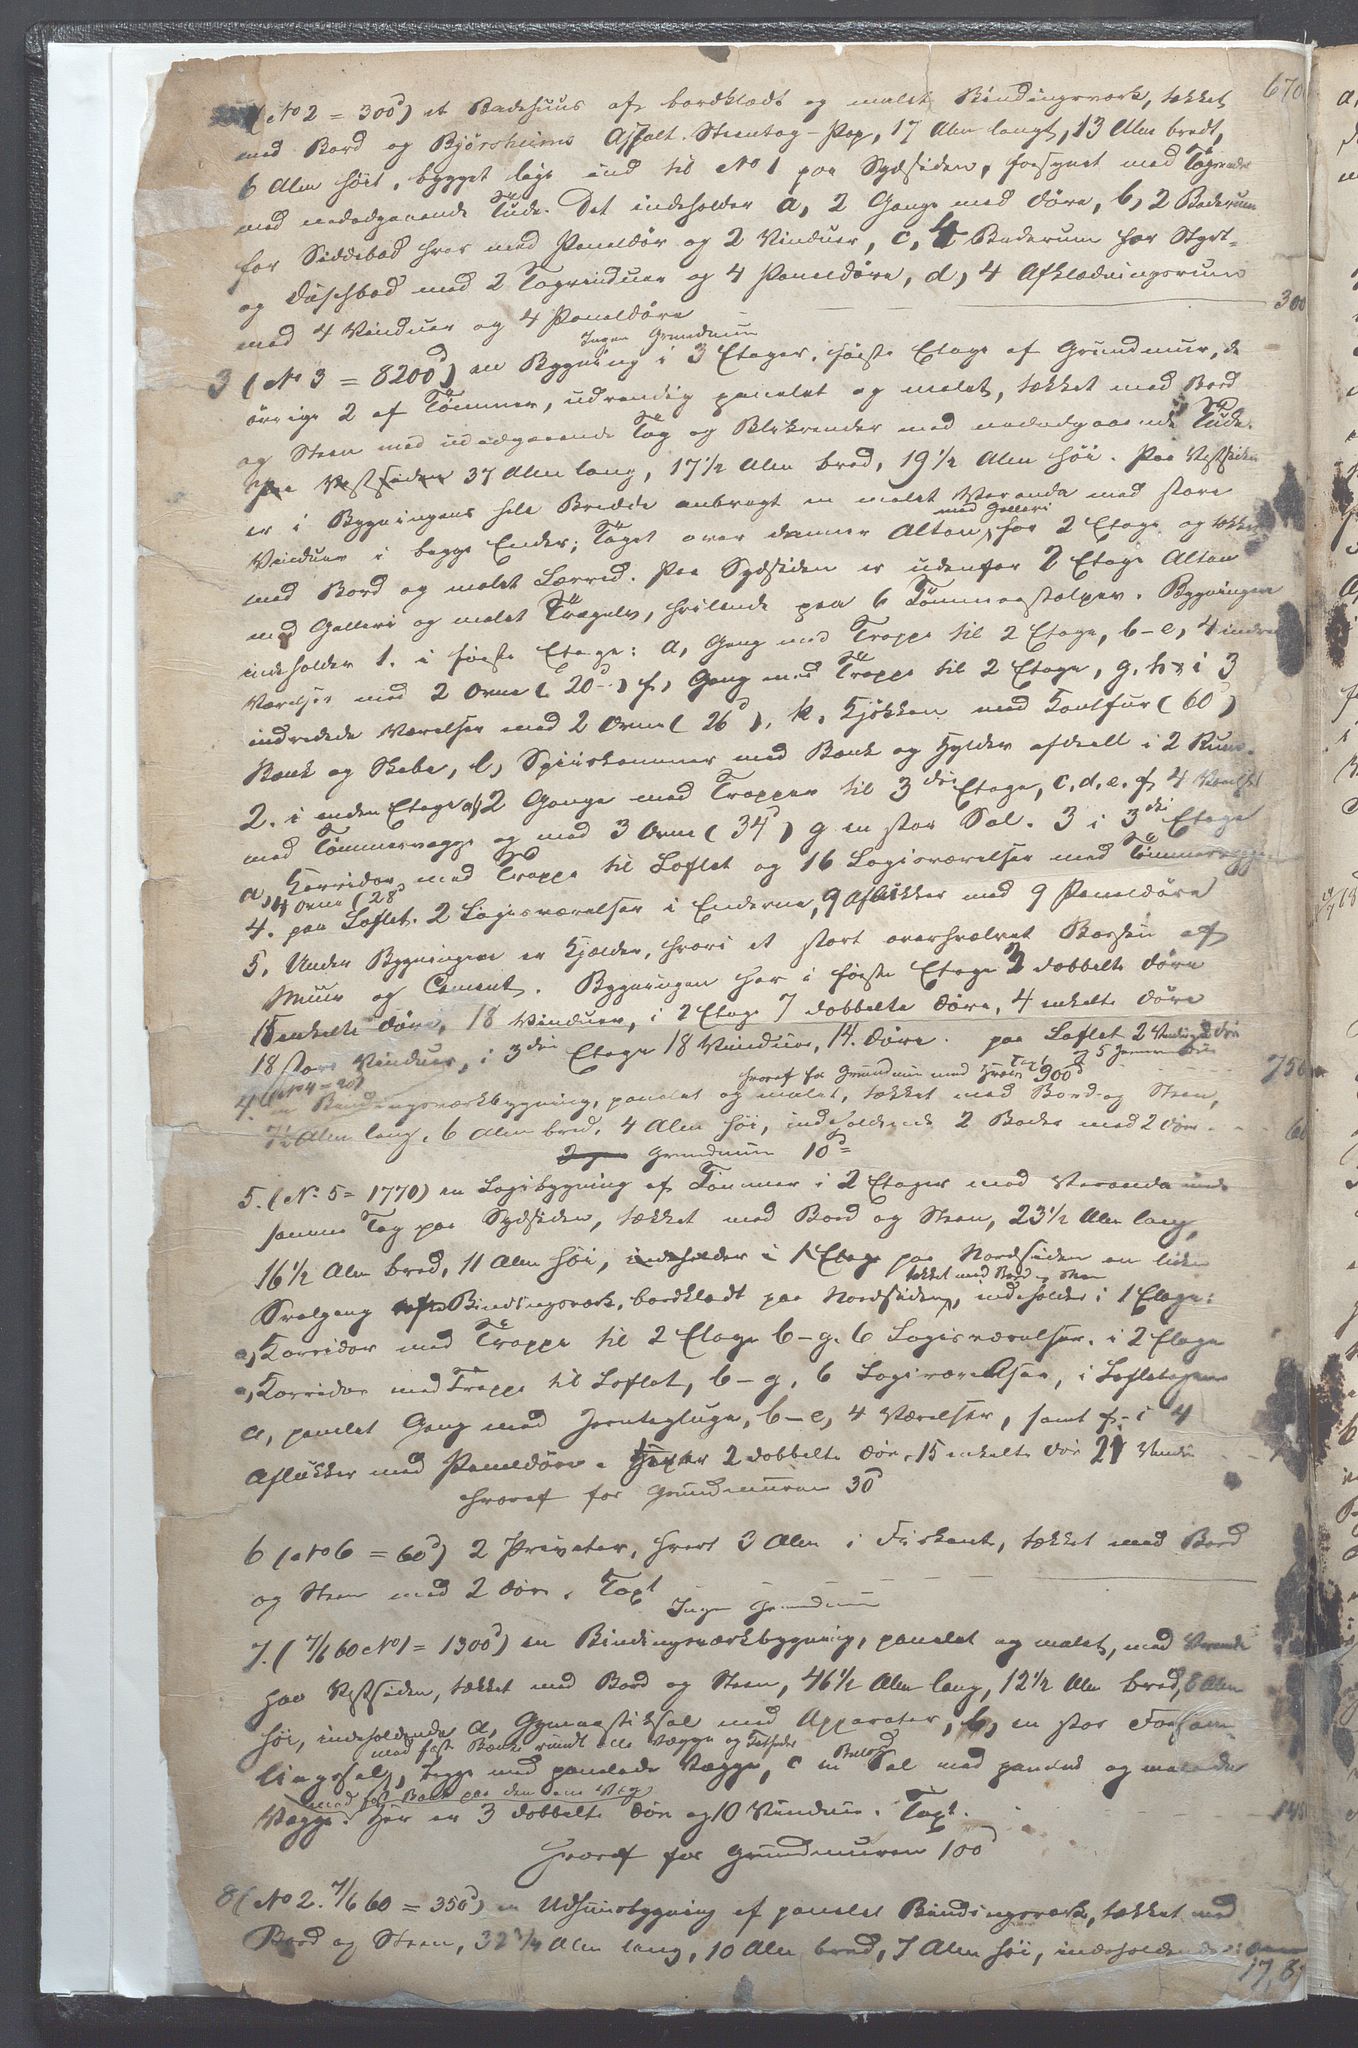 670
(No 2 = 300d) et Badehuus af bordklædt og malet Bindingsværk, tækket
med Bord og Bjørsheims Asfalt-Steentag-Pap, 17 Alen langt, 13 Alen bredt,
6 Alen høit, bygget lige ind til No 1 paa Sydsiden, forsynet med Tagrende
med nedadgaaende Tude. Det indeholder a, 2 Gange med Døre, b, 2 Baderum
for Siddebad hver med Paneldør og 2 Vinduer, c, 4 Baderum for Styrt-
og Duschbad med 2 Tagvinduer og 4 Paneldøre, d, 4 Afklædningsrum
med 4 Vinduer og 4 Paneldøre
300
Ingen Grundmuur
3 (No 3 = 8200d) en Bygning i 3 Etager, første Etage af Grundmuur, de
øvrige 2 af Tømmer, udvendig panelet og malet, tækket med Bord
og Steen med udadgaaende Tag og Blikrender med nedadgaaende Tude.
Paa Vestsiden 37 Alen lang, 17 1/2 Alen bred, 19 1/2 Alen høi. Paa Vestsiden
er i Bygningens hele Bredde anbragt en malet Veranda med store
Vinduer i begge Ender; Taget over danner Altan med Galleri for 2 Etage og tækket
med Bord og malet Lærred. Paa Sydsiden er udenfor 2 Etage Altan
med Galleri og malet Trægulv, hvilende paa 6 Tømmerstolper. Bygningen
indeholder 1. i første Etage: a, Gang med Trappe til 2 Etage, b-e, 4 indre
Værelser med 2 Ovne (20d) f, Gang med Trappe til 2 Etage, g. h. i 3
indredede Værelser med 2 Ovne (26d), k, Kjøkken med Komfur (60d)
Bænk og Skabe, l, Spiiskammer med Bænk og Hylder afdeelt i 2 Rum.
2. i anden Etage a, 2 Gange med Trapper til 3die Etage, c. d. e. f. 4 Værelser
med Tømmervægge og med 3 Ovne (34d) g en stor Sal. 3 i 3die Etage
a, Korridor med Trappe til Loftet og 16 Logisværelser med Tømmervægge
4 Ovne (28d
4. paa Loftet. 2 Logisværelser i Enderne, 9 Aflukker med 9 Paneldøre
5. Under Bygningen er Kjælder, hvori et stort overhvælvet Bassin af
Muur og Cement. Bygningen har i første Etage 2 dobbelte Døre
15 enkelte Døre, 18 Vinduer, i 2 Etage 7 dobbelte Døre, 4 enkelte Døre
18 store Vinduer, i 3die Etage 18 Vinduer, 14 Døre. paa Loftet 2 Vinduer
hvoraf for Grundmuur med 900d
750
4. en Bindingsværkbygning, panelet og malet, tækket med Bord og Steen,
7 1/2 Alen lang, 6 Alen bred, 4 Alen høi, indeholdende 2 Bade med 2 Døre
60
Grundmuur 10d
5. (No 5 = 1770) en Logibygning af Tømmer i 2 Etager med Veranda under
samme Tag paa Sydsiden, tækket med Bord og Steen, 23 1/2 Alen lang,
16 1/2 Alen bred, 11 Alen høi, indeholder i 1 Etage paa Nordsiden en liden
tækket med Bord og Steen
Svalgang af Bindingsværk, bordklædt paa Nordsiden, indeholder i 1 Etage:
a, Korridor med Trappe til 2 Etage b-g. 6 Logisværelser. i 2 Etage
a, Korridor med Trappe til Loftet, b-g, 6 Logisværelser, i Loftetagen
a, panelet Gang med Jerntagluge, b-e, 4 Værelser, samt f-i 4
Aflukker med Paneldøre. Her er 2 dobbelte Døre, 15 enkelte Dør 21 Vindu
hvoraf for Grundmuren 30d
6 (No 6 = 60d) 2 Privater, hvert 3 Alen i Fiirkant, tækket med Bord
og Steen med 2 Døre. Taxt
Ingen Grundmuur
7. (7/6 60 No 1 = 1300d) en Bindingsværkbygning, panelet og malet, med Veranda
paa Vestsiden, tækket med Bord og Steen, 46 1/2 Alen lang, 12 1/2 Alen bred, 6 Alen
høi, indeholdende a, Gymnastiksal med Apparater, b, en stor Forsam-
med fast Bænk rundt alle Vægge og
lingssal, begge med panelede Vægge, c en Sal med panelede og malede
med fast Bænk paa den ene Væg
Vægge. Her er 3 dobbelte Døre og 10 Vinduer. Taxt.
145
hvoraf for Grundmuren 100d
8 (No 2. 7/6 60 = 350d) en Udhuusbygning af panelet Bindingsværk, tækket med
Bord og Steen, 32 1/4 Alen lang, 10 Alen bred, 7 Alen høi, indeholdende:
17,8